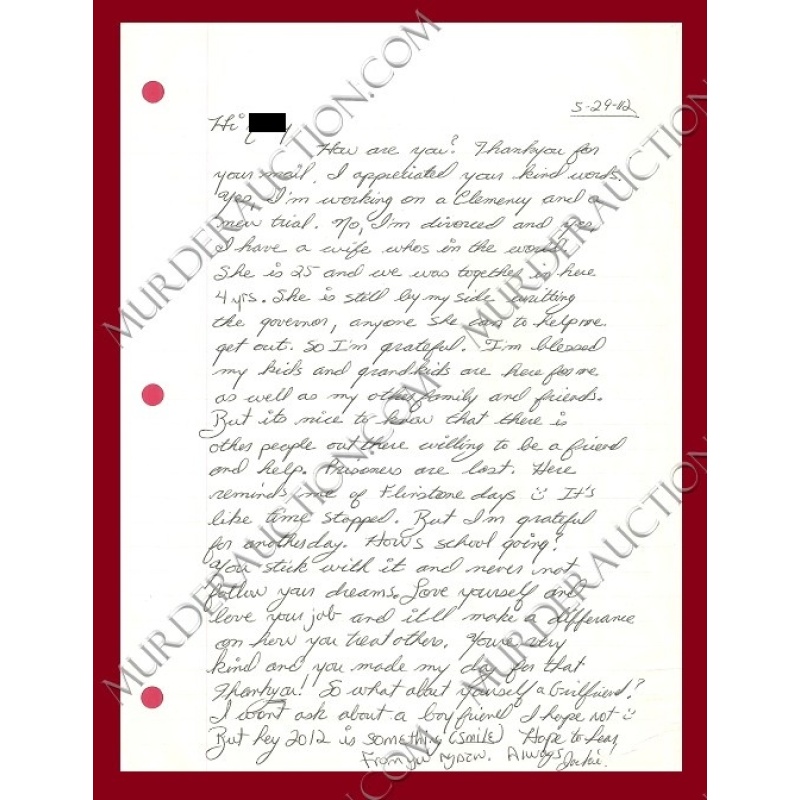 5-29-12
Hi
How are you? Thankyou for
your mail. I appriciated your kind words.
Yes, I'm working on a Clemency and a
new trial. No, I'm divorced and yes
I have a wife whos in the world
She is 25 and we was together in here
4 yrs. She is still by my side writting
the governor, anyone she can to help me
get out. So I'm grateful. I'm blessed
my kids and grandkids are here for me
as well as my other family and friends.
But its nice to know that there is
other people out there willing to be a friend
and help. Prisoners are lost. Here
reminds me of Flinstone days It's
like time stopped. But I'm grateful
for anotherday. Hows school going?
You stick with it and never not
follow your dreams. Love yourself and
love your job and itll make a differance
on how you treat others. Youre very
kind and you made my day for that
Thankyou! So what about yourself a Girlfriend?
I wont ask about a boyfriend I hope not
But hey 2012 is something (smile) Hope to hear
From you Always Jackie.
MURDERAUCTION.COM